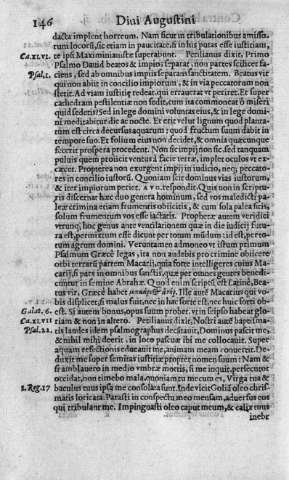 146 Diui Augustini
dacta implent horreum. Nam sicut in tribulationibus amisso-
rum locorũ, sic etiam in paucitate, si in his putas esse iustitiam,
Ca.XLVI. te ipsi Maximianistæ superabunt. Petilianus dixit. Primo
Psalmo Dauid beatos & impios separat, non partes scilicet fa-
Psal.1. ciens, sed ab omnibus impijs separans sanctitatem. Beatus vir
qui non abijt in concilio impiorum, & in via peccatorum non
stetit. Ad viam iustitiæ redeat, qui erraurat vt periret. Et super
cathedram pestilentiæ non sedit, cum ita commoneat ô miseri
quid sedetis? Sed in lege domini voluntas eius, & in lege domi-
ni meditabitur die ac nocte. Et erit velut lignum quod planta-
tum est circa decursus aquarum: quod fructum suum dabit in
tempore suo. Et folium eius non decidet, & omnia quæcunque
fecerit prospera procedent. Non sic impij non sic sed tanquam
puluis quem proijcit ventus à facie terræ, implet oculos vt ex-
cæcet. Propterea non exurgent impij in iudicio, neq; peccato-
res in concilio iustorũ. Quoniam scit dominus vias iustorum,
& iter impiorum periet. AVG. respondit. Quis non in scriptu-
ris discernat hæc duo genera hominum, sed vos maledici pa-
leæ crimina etiam frumentis obijcitis, & cum sola palea sitis,
solum frumentum vos esse iactatis. Prophetæ autem veridici
vtrunq; hoc genus ante ventilationem quæ in die iudicij futu-
ra est, permixtum esse dicunt per totum mũdum: id est, per to-
rum agrum domini. Veruntamen admoneo vt istum primum
Psalmum Græcè legas, ita non audebis pro crimine obijcere
orbi terrarũ partem Macarij, quia forte intelliges cuius Ma-
carij, si pars in omnibus sanctis, quæ per omnes gentes benedi-
cuntur in semine Abrahæ. Quod enim scriptũ est Latinè, Bea-
tus vir, Græcè habet μακάριος ἀνήρ. Iste autẽ Macarius qui vo-
bis displicet, si malus fuit, nec in hac sorte est, nec huic sorti ob-
Galat.6. est. Si autem bonus, opus suum probet, vt in seipso habeat glo-
Ca.XLVII riam & non in altero. Petilianus dixit, Nostri autẽ baptisma-
Psal.22. tis laudes idem psalmographus decantat, Dominus pascit me,
& nihil mihi deerit, in loco pascuæ ibi me collocauit. Super
aquam refectionis educauit me, animam meam conuertit. De-
duxit me super semitas iustitiæ propter nomen suum: Nam &
si ambulauero in medio vmbræ mortis, si me inquit, persecutor
occidat, non timebo mala, quoniam tu mecum es, Virga tua &
1.Reg.17 baculus tuus ipsa me consolata sunt. Inde vicit Goliã oleo chris-
matis loricata. Parasti in conspectu meo mensam, aduersus eos
qui tribulant me. Impinguasti oleo caput meum, & calix tuus
inebr